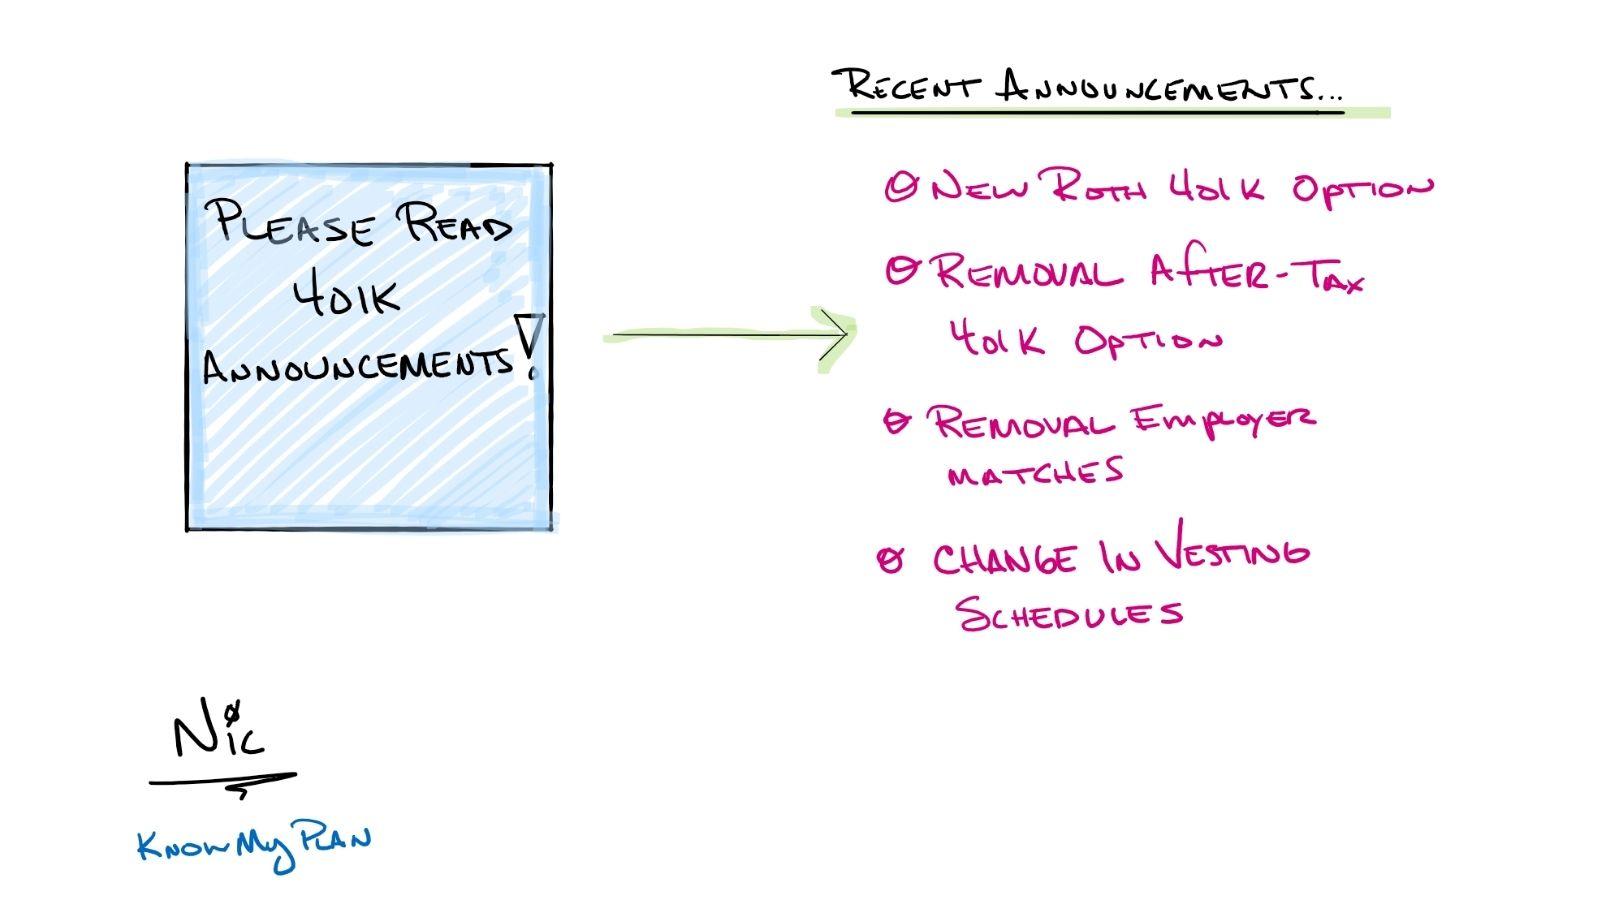 Please Read
401K
Announcements!
Recent Announcements...
New Roth 401K Option
Removal After-Tax
401K Option
Removal Employer
Matches
Change In Vesting
Schedules
Nic
KnowMyPlan